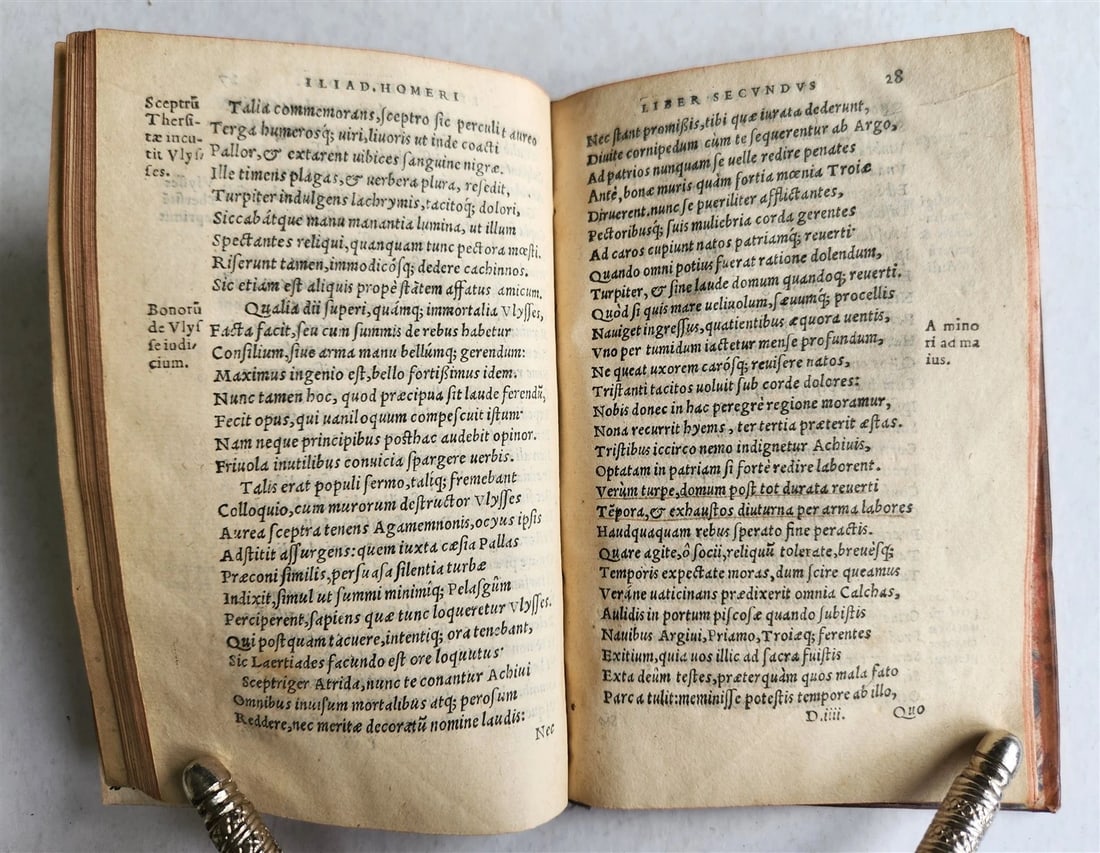 ILIAD. HOMERI
Sceptrū
Thersi-
tæ incu-
tit Vlyſ
ſes.
Talia commemorans, ſceptro ſic perculit aureo
Terga humerosq; uiri, liuoris ut inde coacti
Pallor, & extarent uibices ſanguine nigræ.
Ille timens plagas, & uerbera plura, reſedit,
Turpiter indulgens lachrymis, tacitoq; dolori,
Siccabátque manu manantia lumina, ut illum
Spectantes reliqui, quanquam tunc pectora mœſti.
Riſerunt tamen, immodicósq; dedere cachinnos.
Sic etiam eſt aliquis propè ſtātem affatus amicum.
Bonorū
de Vlyſ
ſe iudi-
cium.
Qualia dii ſuperi, quámq; immortalia Vlyſſes,
Facta facit, ſeu cum ſummis de rebus habetur
Conſilium, ſiue arma manu bellúmq; gerendum:
Maximus ingenio eſt, bello fortiſsimus idem.
Nunc tamen hoc, quod præcipua ſit laude ferendū,
Fecit opus, qui uaniloquum compeſcuit iſtum.
Nam neque principibus poſthac audebit opinor.
Friuola inutilibus conuicia ſpargere uerbis.
Talis erat populi ſermo, taliq; fremebant
Colloquio, cum murorum deſtructor Vlyſſes
Aurea ſceptra tenens Agamemnonis, ocyus ipſis
Adſtitit aſſurgens: quem iuxta cæſia Pallas
Præconi ſimilis, perſuaſa ſilentia turbæ
Indixit, ſimul ut ſummi minimiq; Pelaſgûm
Perciperent, ſapiens quæ tunc loqueretur Vlyſſes.
Qui poſtquam tacuere, intentiq; ora tenebant,
Sic Laertiades facundo eſt ore loquutus.
Sceptriger Atrida, nunc te conantur Achiui
Omnibus inuiſum mortalibus atq; peroſum
Reddere, nec meritæ decoratū nomine laudis:
Nec
LIBER SECVNDVS
28
Nec ſtant promiſsis, tibi quæ iurata dederunt,
Diuite cornipedum cùm te ſequerentur ab Argo,
Ad patrios nunquam ſe uelle redire penates
Antè, bonæ muris quàm fortia mœnia Troiæ
Diruerent. nunc ſe pueriliter afflictantes,
Pectoribusq; ſuis muliebria corda gerentes
Ad caros cupiunt natos patriamq; reuerti.
Quando omni potius fuerat ratione dolendum,
Turpiter, & ſine laude domum quandoq; reuerti.
Quòd ſi quis mare ueliuolum, ſæuumq; procellis
Nauiget ingreſſus, quatientibus æquora uentis,
A mino
ri ad ma
ius.
Vno per tumidum iactetur menſe profundum,
Ne queat uxorem carósq; reuiſere natos,
Triſtanti tacitos uoluit ſub corde dolores:
Nobis donec in hac peregrè regione moramur,
Nona recurrit hyems, ter tertia præterit æſtas.
Triſtibus iccirco nemo indignetur Achiuis,
Optatam in patriam ſi fortè redire laborent.
Verùm turpe, domum poſt tot durata reuerti
Tēpora, & exhauſtos diuturna per arma labores
Haudquaquam rebus ſperato fine peractis.
Quare agite, ô ſocii, reliquū tolerate, breuésq;
Temporis expectate moras, dum ſcire queamus
Veráne uaticinans prædixerit omnia Calchas,
Aulidis in portum piſcoſæ quando ſubiſtis
Nauibus Argiui, Priamo, Troiæq; ferentes
Exitium, quia uos illic ad ſacra fuiſtis
Exta deûm teſtes, præterquàm quos mala fato
Parca tulit: meminiſſe poteſtis tempore ab illo,
D.iiii.
Quo